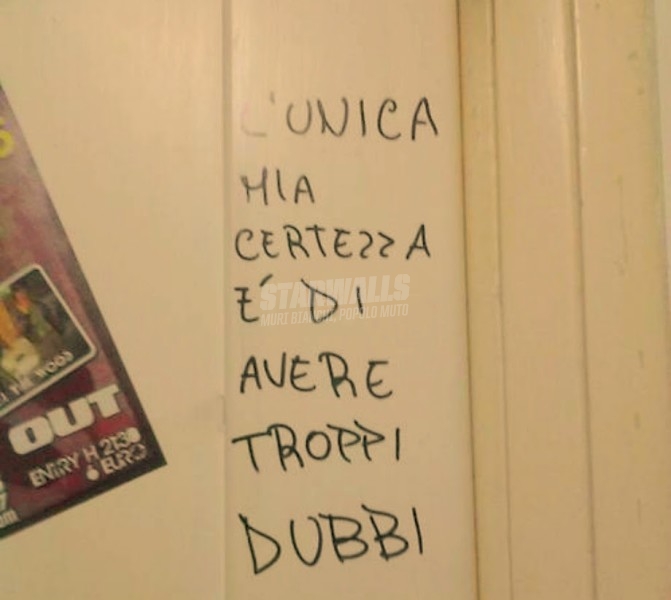 L'UNICA
MIA
CERTEZZA
É DI
AVERE
TROPPI
DUBBI
STARWALLS
MURI BIANCHI, POPOLO MUTO
THE WOOD
OUT
ENTRY H 21:30
6 EURO